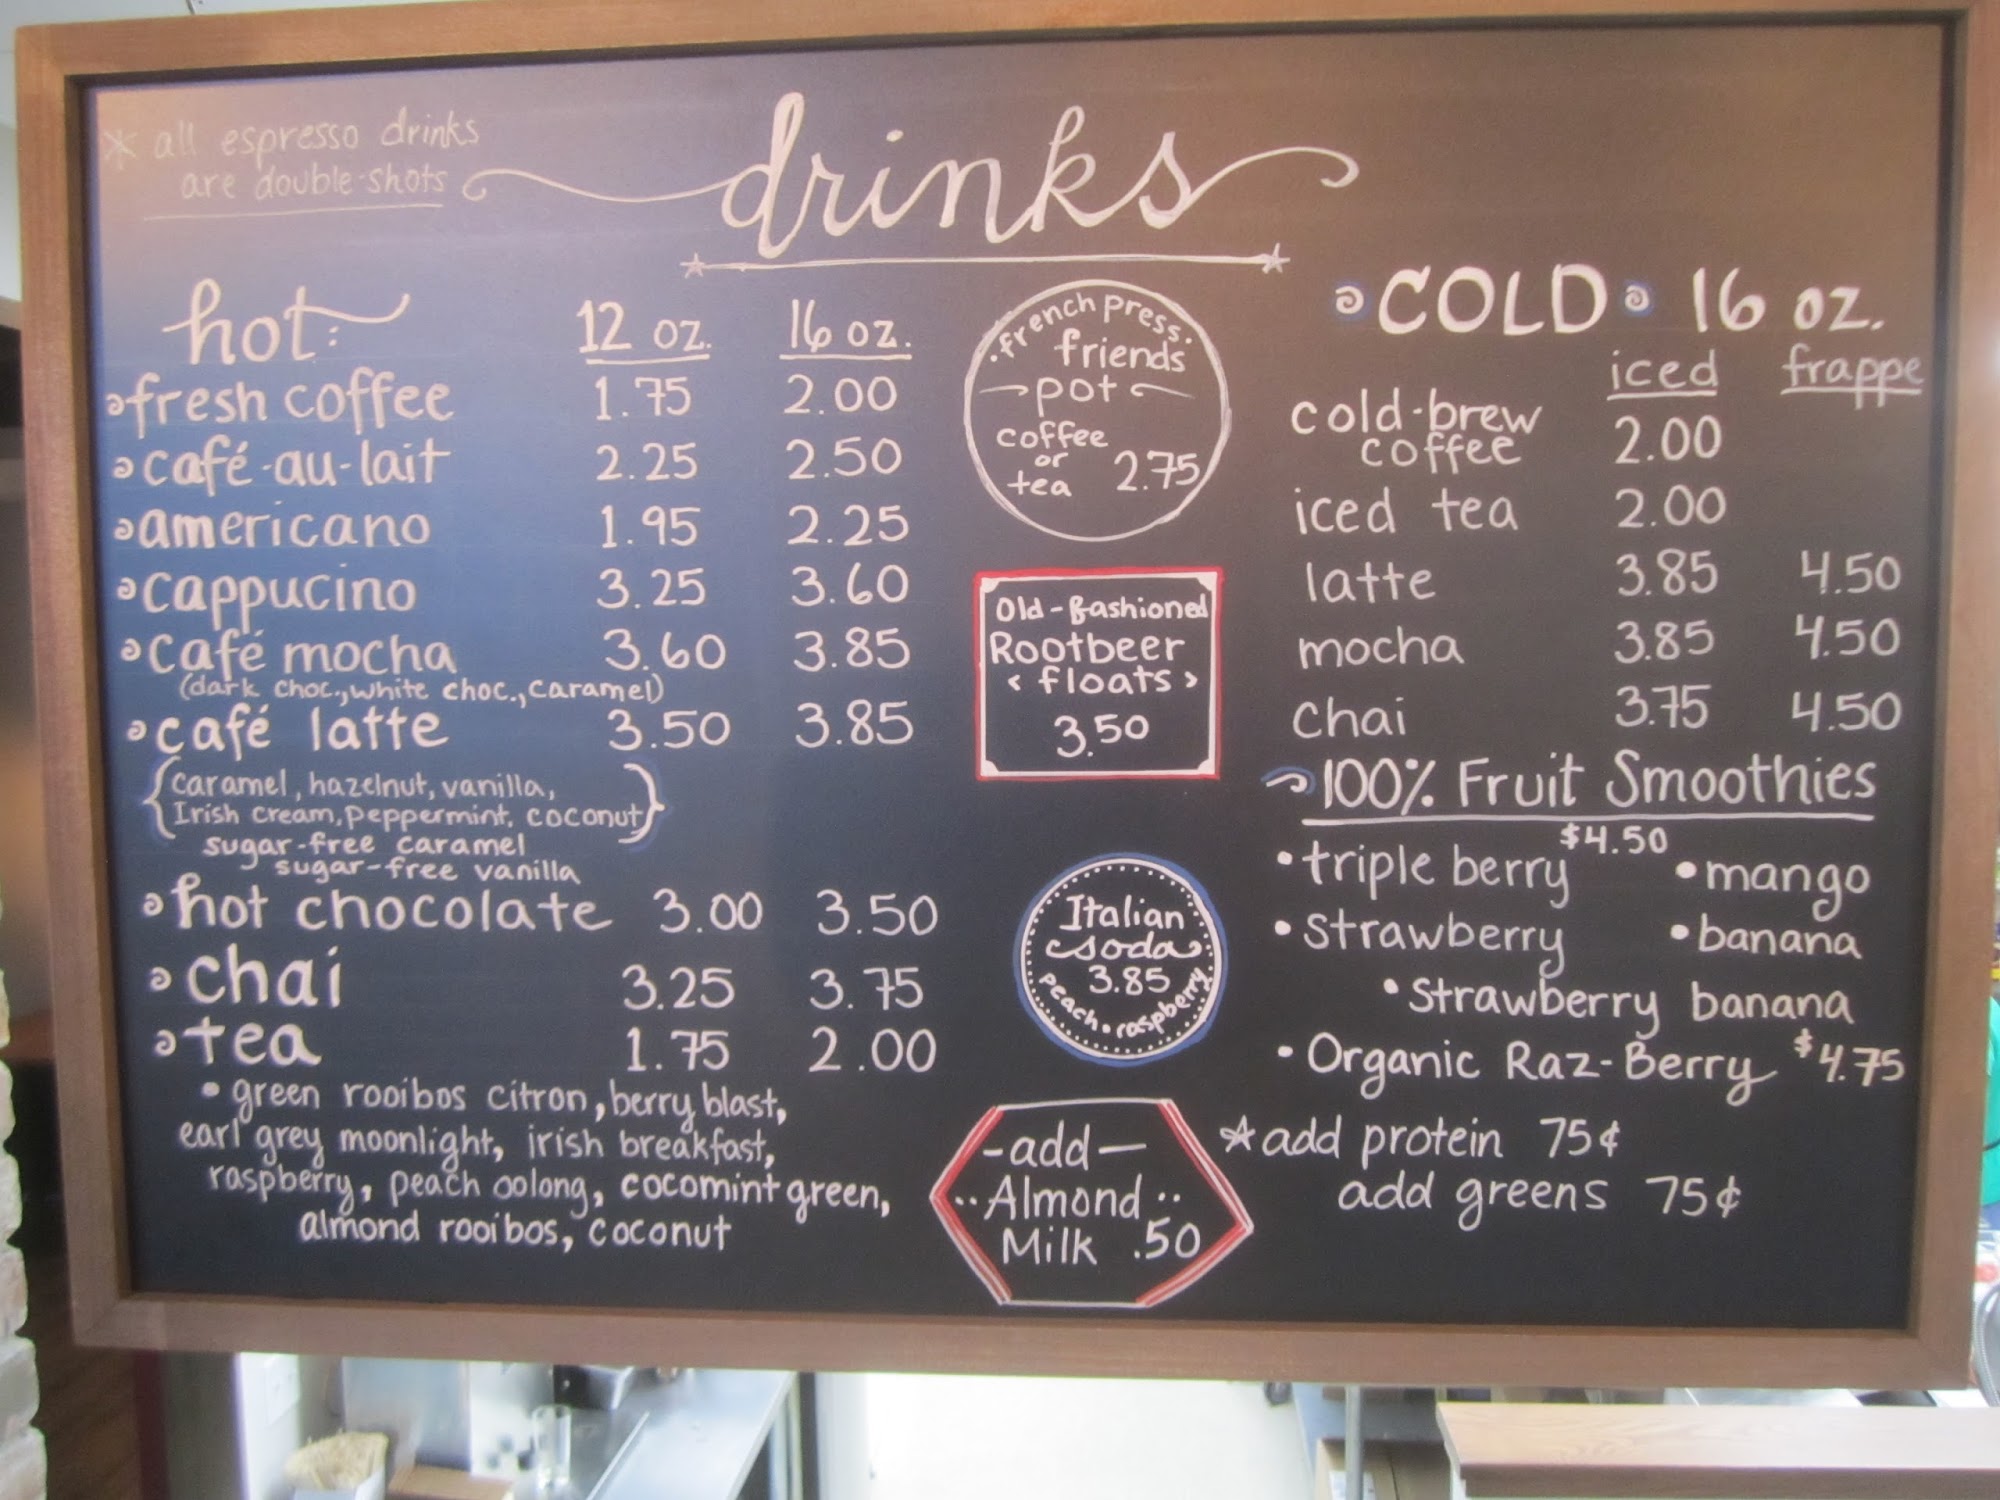 * all espresso drinks
are double-shots
drinks
hot:
12 oz. 16 oz.
fresh coffee 1.75 2.00
café-au-lait 2.25 2.50
americano 1.95 2.25
cappucino 3.25 3.60
café mocha 3.60 3.85
(dark choc., white choc., caramel)
café latte 3.50 3.85
{caramel, hazelnut, vanilla,
Irish cream, peppermint, coconut}
sugar-free caramel
sugar-free vanilla
hot chocolate 3.00 3.50
chai 3.25 3.75
tea 1.75 2.00
• green rooibos citron, berry blast,
earl grey moonlight, irish breakfast,
raspberry, peach oolong, cocomint green,
almond rooibos, coconut
·french press·
friends
pot
coffee
or
tea 2.75
Old-fashioned
Rootbeer
< floats >
3.50
Italian
soda
3.85
peach • raspberry
-add-
..Almond..
Milk .50
COLD 16 oz.
iced frappe
cold-brew
coffee 2.00
iced tea 2.00
latte 3.85 4.50
mocha 3.85 4.50
chai 3.75 4.50
100% Fruit Smoothies
$4.50
• triple berry • mango
• strawberry • banana
• strawberry banana
• Organic Raz-Berry $4.75
☆ add protein 75¢
add greens 75¢